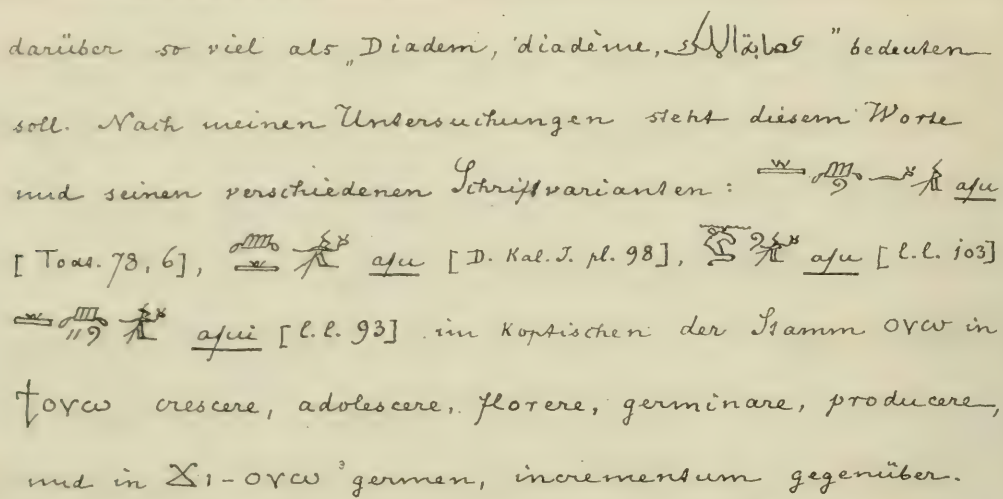 darüber so viel als „Diadem, diadème, عصابة الملك" bedeuten
soll. Nach meinen Untersuchungen steht diesem Worte
und seinen verschiedenen Schriftvarianten: afu
[Todt. 78, 6], afu [D. Kal. I. pl. 98], afu [l.l. 103]
afui [l.l. 93] im Koptischen der Stamm ⲟⲩⲱ in
ϯⲟⲩⲱ crescere, adolescere, florere, germinare, producere,
und in ϫⲓ-ⲟⲩⲱ germen, incrementum gegenüber.